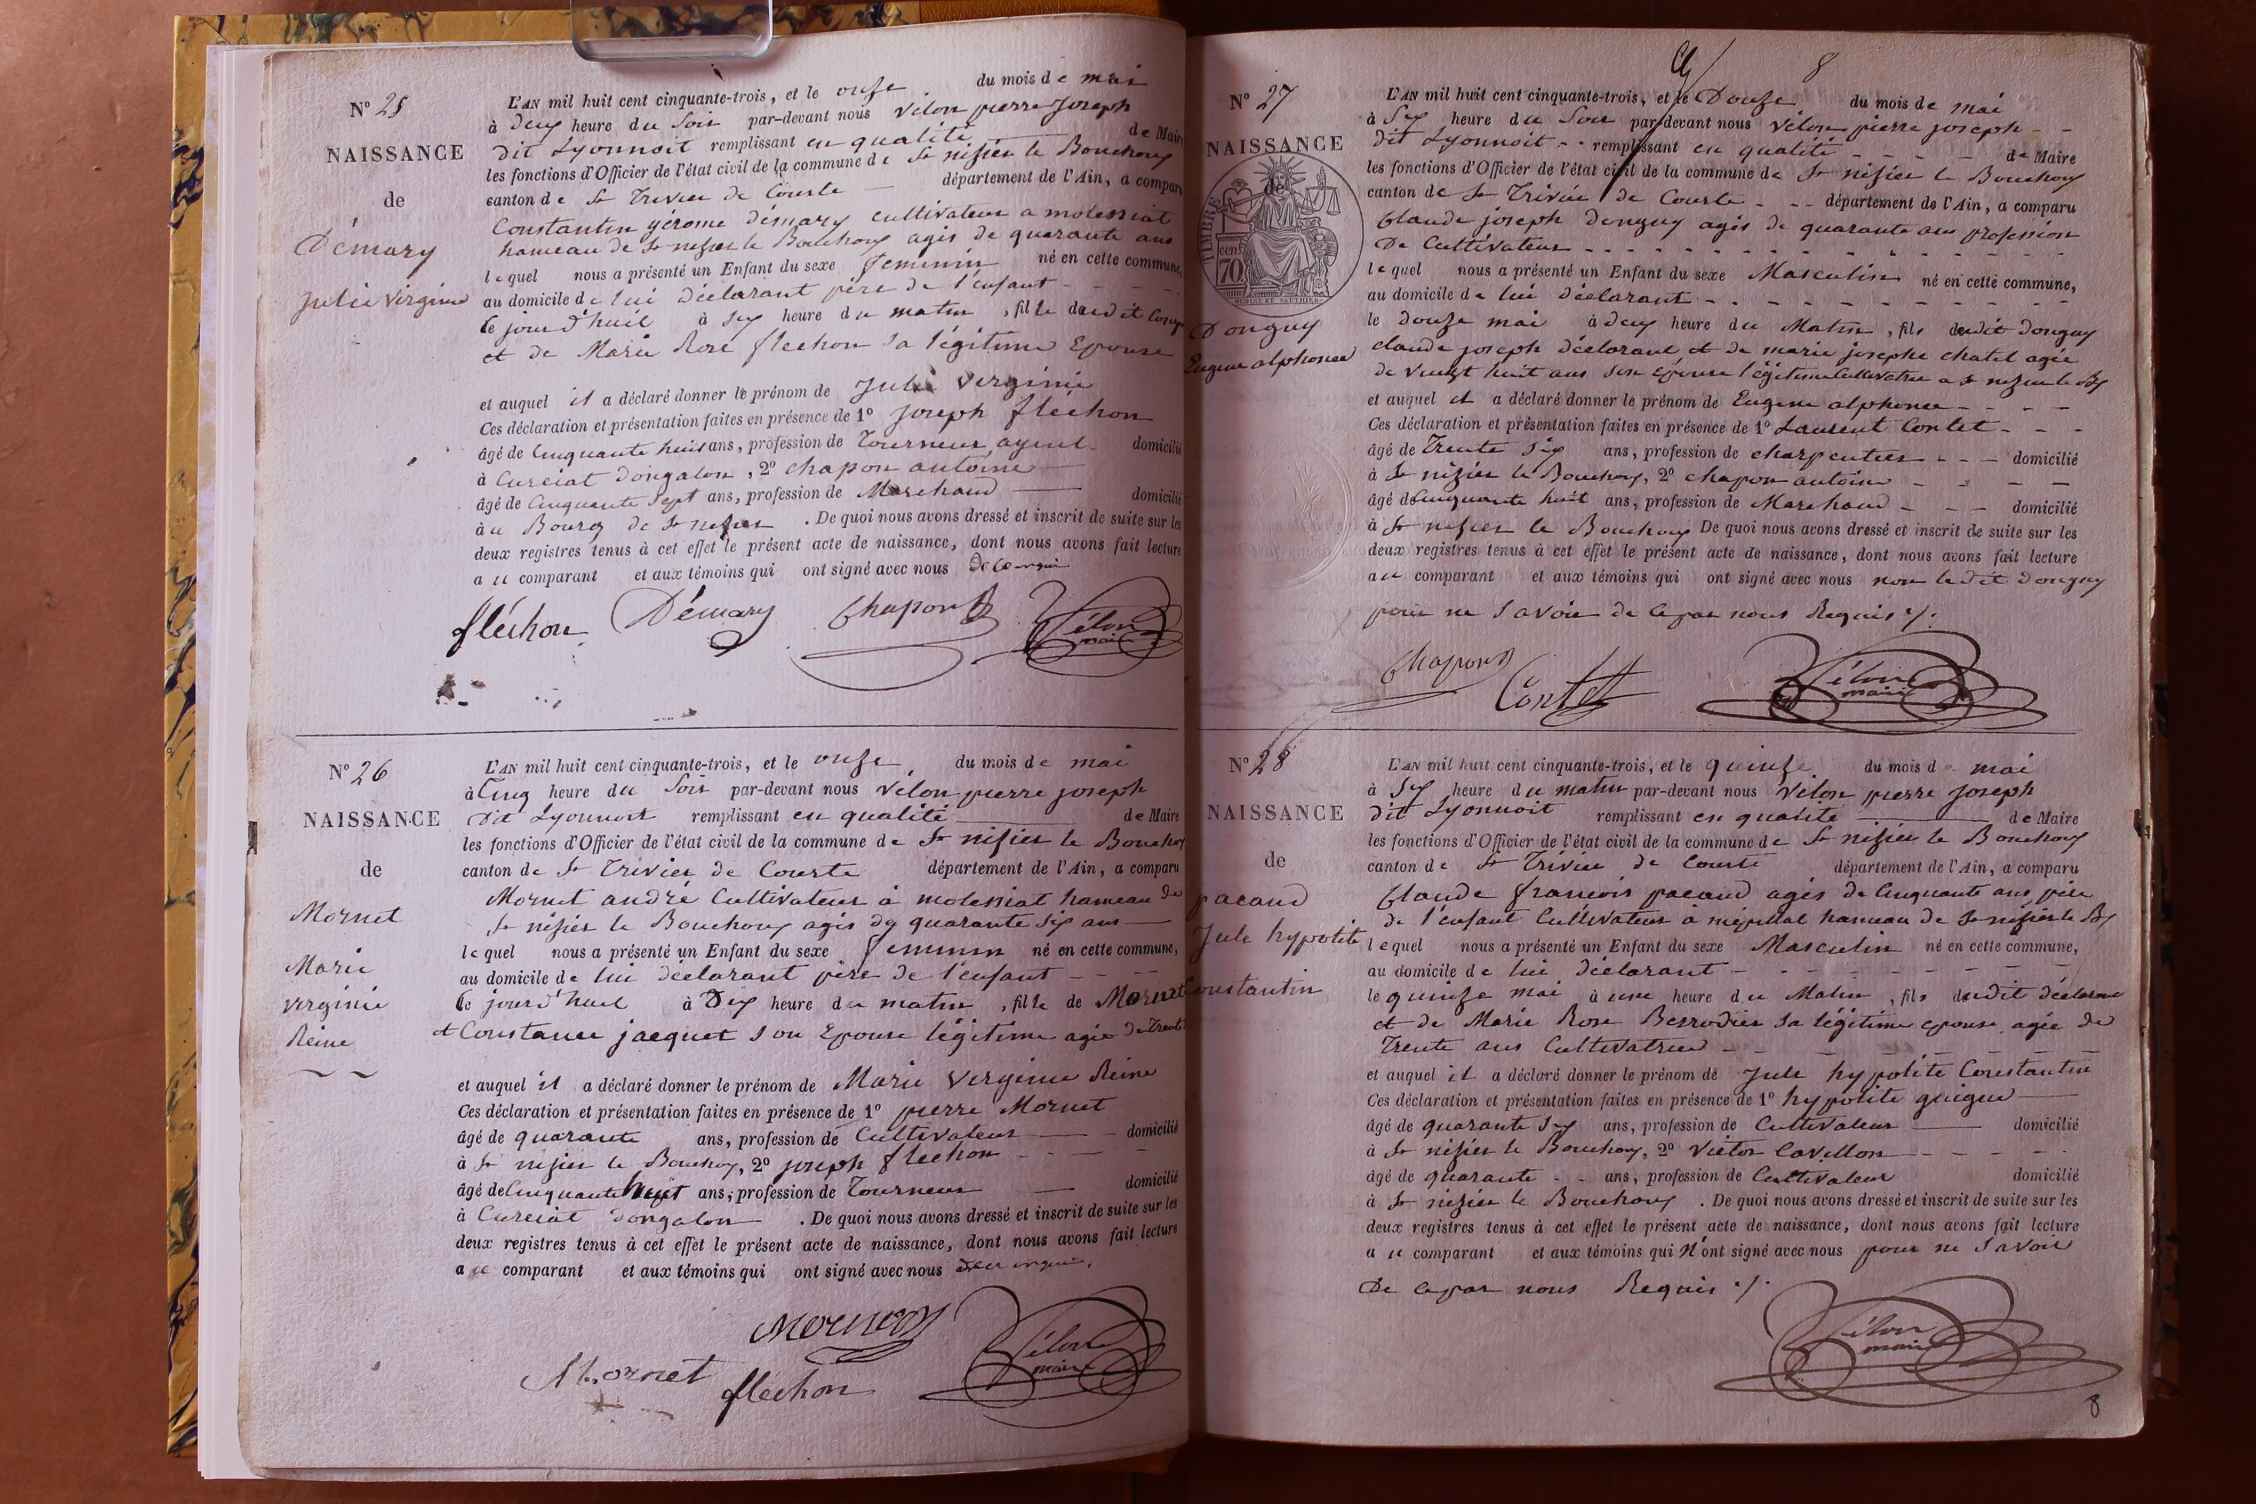 N° 25
NAISSANCE
de
Démary
Julie Virginie
L'AN mil huit cent cinquante-trois, et le onze du mois de mai
à deux heure du Soir par-devant nous Vélon pierre joseph
dit Lyonnoit remplissant en qualité de Maire
les fonctions d'Officier de l'état civil de la commune de St nisier le Bouchoux
canton de St Trivier de Courte département de l'Ain, a comparu
Constantin gérome démary cultivateur a molessiat
hameau de St nisier le Bouchoux agis de quarante ans
lequel nous a présenté un Enfant du sexe feminin né en cette commune,
au domicile de lui déclarant père de l'enfant
Ce jourd'huit à Six heure du matin, fille dudit
et de Marie Rose fléchon sa légitime Epouse
et auquel il a déclaré donner le prénom de Julie Verginie
Ces déclaration et présentation faites en présence de 1° joseph fléchon
âgé de Cinquante huit ans, profession de Tourneur domicilié
à Curciat dongalon, 2° chapon antoine
âgé de Cinquante Sept ans, profession de Marchand domicilié
à u Bourg de St nisier. De quoi nous avons dressé et inscrit de suite sur les
deux registres tenus à cet effet le présent acte de naissance, dont nous avons fait lecture
au comparant et aux témoins qui ont signé avec nous
fléchon Démary Chapon Vélon
maire
N° 26
NAISSANCE
de
Mornet
Marie
verginie
Reine
L'AN mil huit cent cinquante-trois, et le onze du mois de mai
à Cinq heure du Soir par-devant nous vélon pierre joseph
dit Lyonnoit remplissant en qualité de Maire
les fonctions d'Officier de l'état civil de la commune de St nisier le Bouchoux
canton de St Trivier de Courte département de l'Ain, a comparu
Mornet andré Cultivateur à molessiat hameau de
St nisier le Bouchoux agis de quarante six ans
lequel nous a présenté un Enfant du sexe feminin né en cette commune,
au domicile de lui déclarant père de l'enfant
Ce jourd'huit à Dix heure du matin, fille de Mornet
et Constance jacquet son Epouse légitime agée de Trente
et auquel il a déclaré donner le prénom de Marie Verginie Reine
Ces déclaration et présentation faites en présence de 1° pierre Mornet
âgé de quarante ans, profession de Cultivateur domicilié
à St nisier le Bouchoux, 2° joseph flechon
âgé de Cinquante huit ans, profession de Tourneur domicilié
à Curciat dongalon. De quoi nous avons dressé et inscrit de suite sur les
deux registres tenus à cet effet le présent acte de naissance, dont nous avons fait lecture
au comparant et aux témoins qui ont signé avec nous
Mornet
Mornet flechon Vélon
maire
8
N° 27
NAISSANCE
de
TIMBRE
cent.
70
Donguy
Eugene alphonse
L'AN mil huit cent cinquante-trois, et le Douze du mois de mai
à Six heure du Soir par-devant nous Vélon pierre joseph
dit Lyonnoit remplissant en qualité de Maire
les fonctions d'Officier de l'état civil de la commune de St nisier le Bouchoux
canton de St Trivier de Courte département de l'Ain, a comparu
Claude joseph donguy agis de quarante ans profession
De Cultivateur
lequel nous a présenté un Enfant du sexe Masculin né en cette commune,
au domicile de lui déclarant
le douze mai à deux heure du Matin, fils dudit donguy
claude joseph déclarant et de marie josephe chatel agée
de vingt huit ans son épouse légitime Cultivatrice a St nisier le Bx
et auquel il a déclaré donner le prénom de Eugene alphonse
Ces déclaration et présentation faites en présence de 1° Laurent Contet
âgé de Trente Six ans, profession de charpentier domicilié
à St nisier le Bouchoux, 2° chapon antoine
âgé de Cinquante huit ans, profession de Marchand domicilié
à St nisier le Bouchoux De quoi nous avons dressé et inscrit de suite sur les
deux registres tenus à cet effet le présent acte de naissance, dont nous avons fait lecture
au comparant et aux témoins qui ont signé avec nous non ledit donguy
pour ne savoir de ce par nous Requis
Chapon Contet Vélon
maire
N° 28
NAISSANCE
de
pacaud
Jule hypolite
Constantin
L'AN mil huit cent cinquante-trois, et le quinze du mois d mai
à Six heure du matin par-devant nous Vélon pierre joseph
dit Lyonnoit remplissant en qualité de Maire
les fonctions d'Officier de l'état civil de la commune de St nisier le Bouchoux
canton de St Trivier de Courte département de l'Ain, a comparu
Claude francois pacaud agis de Cinquante ans père
de l'enfant Cultivateur à mépillat hameau de St nisier le Bx
lequel nous a présenté un Enfant du sexe Masculin né en cette commune,
au domicile de lui déclarant
le quinze mai à une heure du Matin, fils dudit déclarant
et de Marie Rose Berrodier sa légitime epouse agée de
Trente ans Cultivatrice
et auquel il a déclaré donner le prénom de Jule hypolite Constantin
Ces déclaration et présentation faites en présence de 1° hypolite guigue
âgé de quarante Six ans, profession de Cultivateur domicilié
à St nisier le Bouchoux, 2° Victor Cavillon
âgé de quarante ans, profession de Cultivateur domicilié
à St nisier le Bouchoux. De quoi nous avons dressé et inscrit de suite sur les
deux registres tenus à cet effet le présent acte de naissance, dont nous avons fait lecture
au comparant et aux témoins qui n'ont signé avec nous pour ne Savoir
De ce par nous Requis
Vélon
maire
8